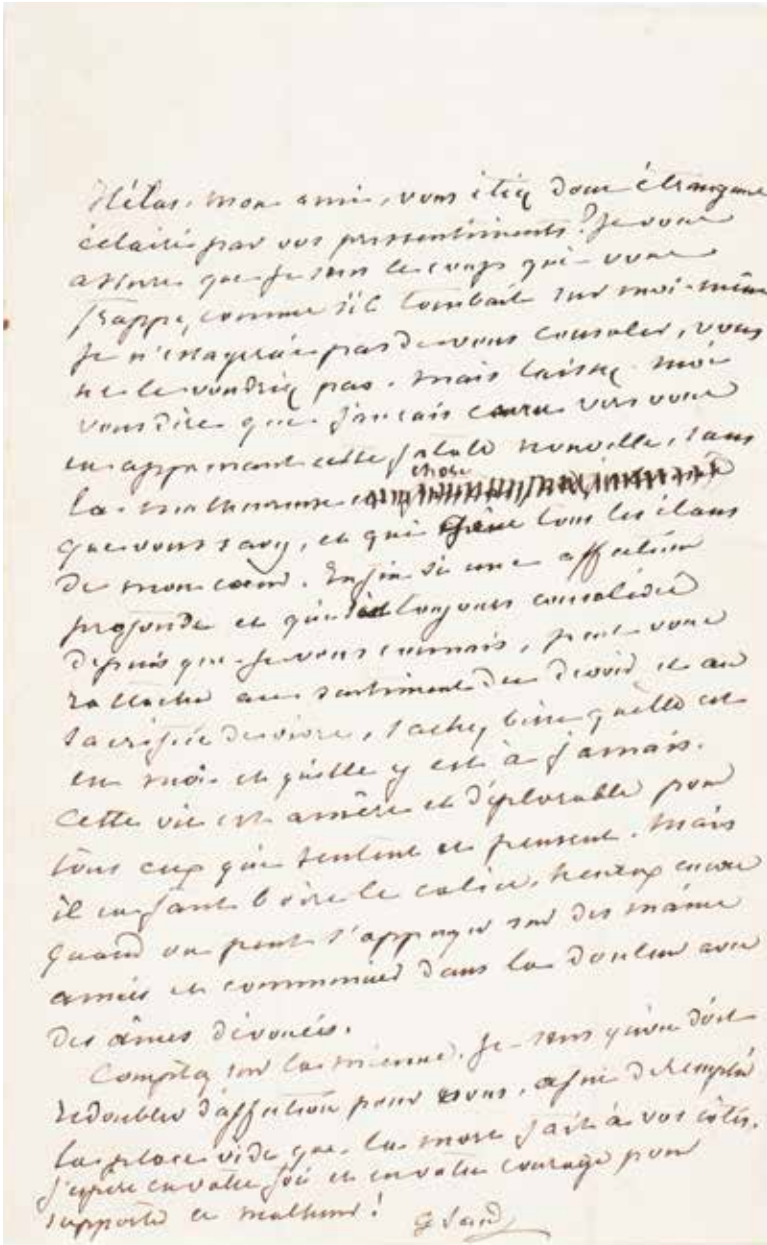 Hélas, mon ami, vous étiez donc étrangement
éclairé par vos pressentiments! Je vous
assure que je sens le coup qui vous
frappe, comme s'il tombait sur moi-même
Je n'essayerai pas de vous consoler, vous
ne le voudriez pas. Mais laissez-moi
vous dire que j'aurais couru vers vous
en apprenant cette fatale nouvelle, sans
la malheureuse chose
que vous savez, et qui gêne tous les élans
de mon cœur. Enfin si une affection
profonde et qui s'est toujours consolidée
depuis que je vous connais, peut vous
rattacher au sentiment du devoir et au
sacrifice de vivre, sachez bien qu'elle est
en moi et qu'elle y est à jamais.
Cette vie est amère et déplorable pour
tous ceux qui sentent et pensent. Mais
il en faut boire le calice, heureux encore
quand on peut s'appuyer sur des mains
amies et communier dans la douleur avec
des âmes dévouées.
Comptez sur la mienne. Je sens qu'on doit
redoubler d'affection pour vous, afin de remplir
la place vide que la mort fait à vos côtés.
J'espère en votre foi et en votre courage pour
supporter ce malheur!
G Sand